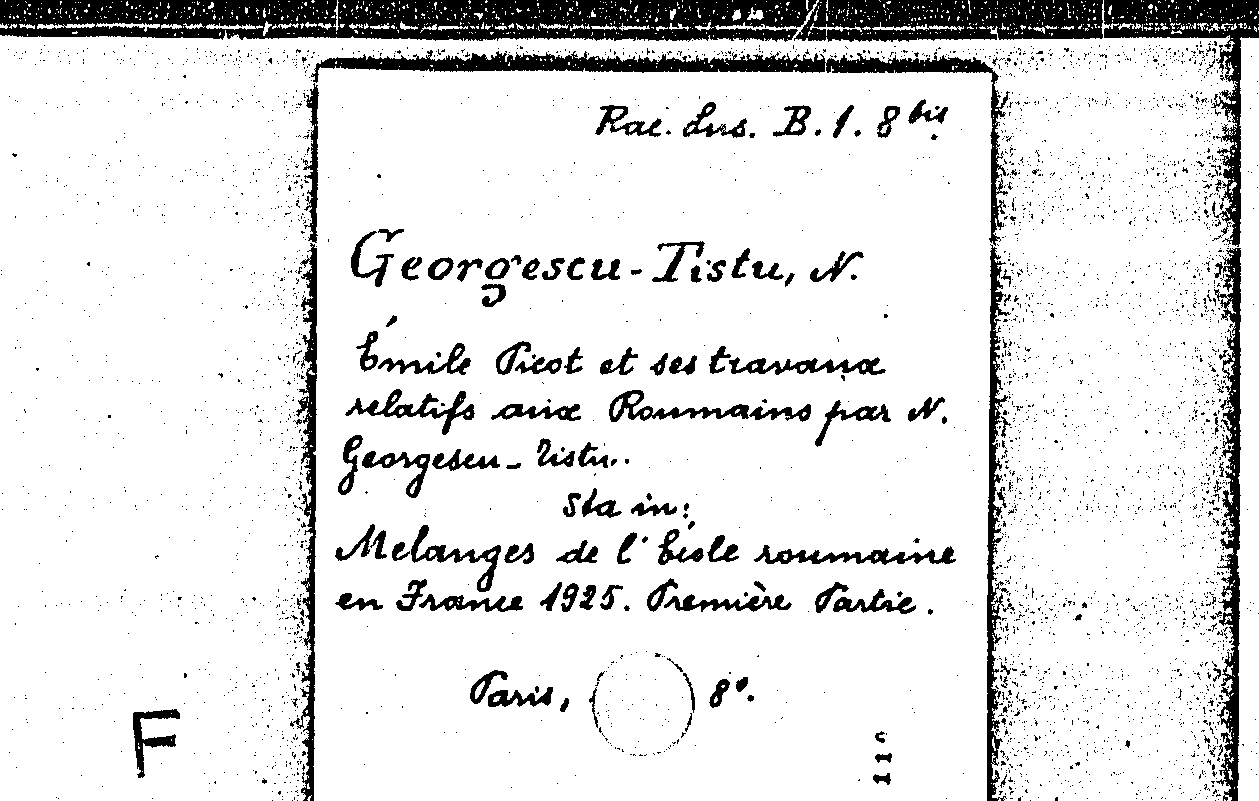 Rac. Lus. B. 1. 8 bis
Georgescu-Tistu, N.
Émile Picot et ses travaux
relatifs aux Roumains par N.
Georgescu-Tistu..
Sta in:
Melanges de l'École roumaine
en France 1925. Première Partie.
Paris, 8°.
F